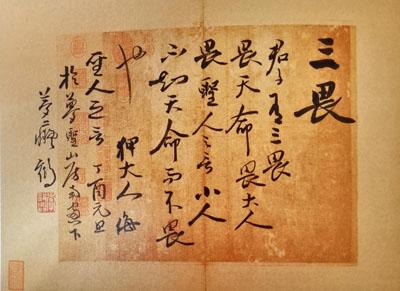 三畏
君子有三畏
畏天命畏大人
畏聖人之言小人
不知天命而不畏
也 狎大人侮
聖人之言 丁酉元旦
於夢聖山房南窗下